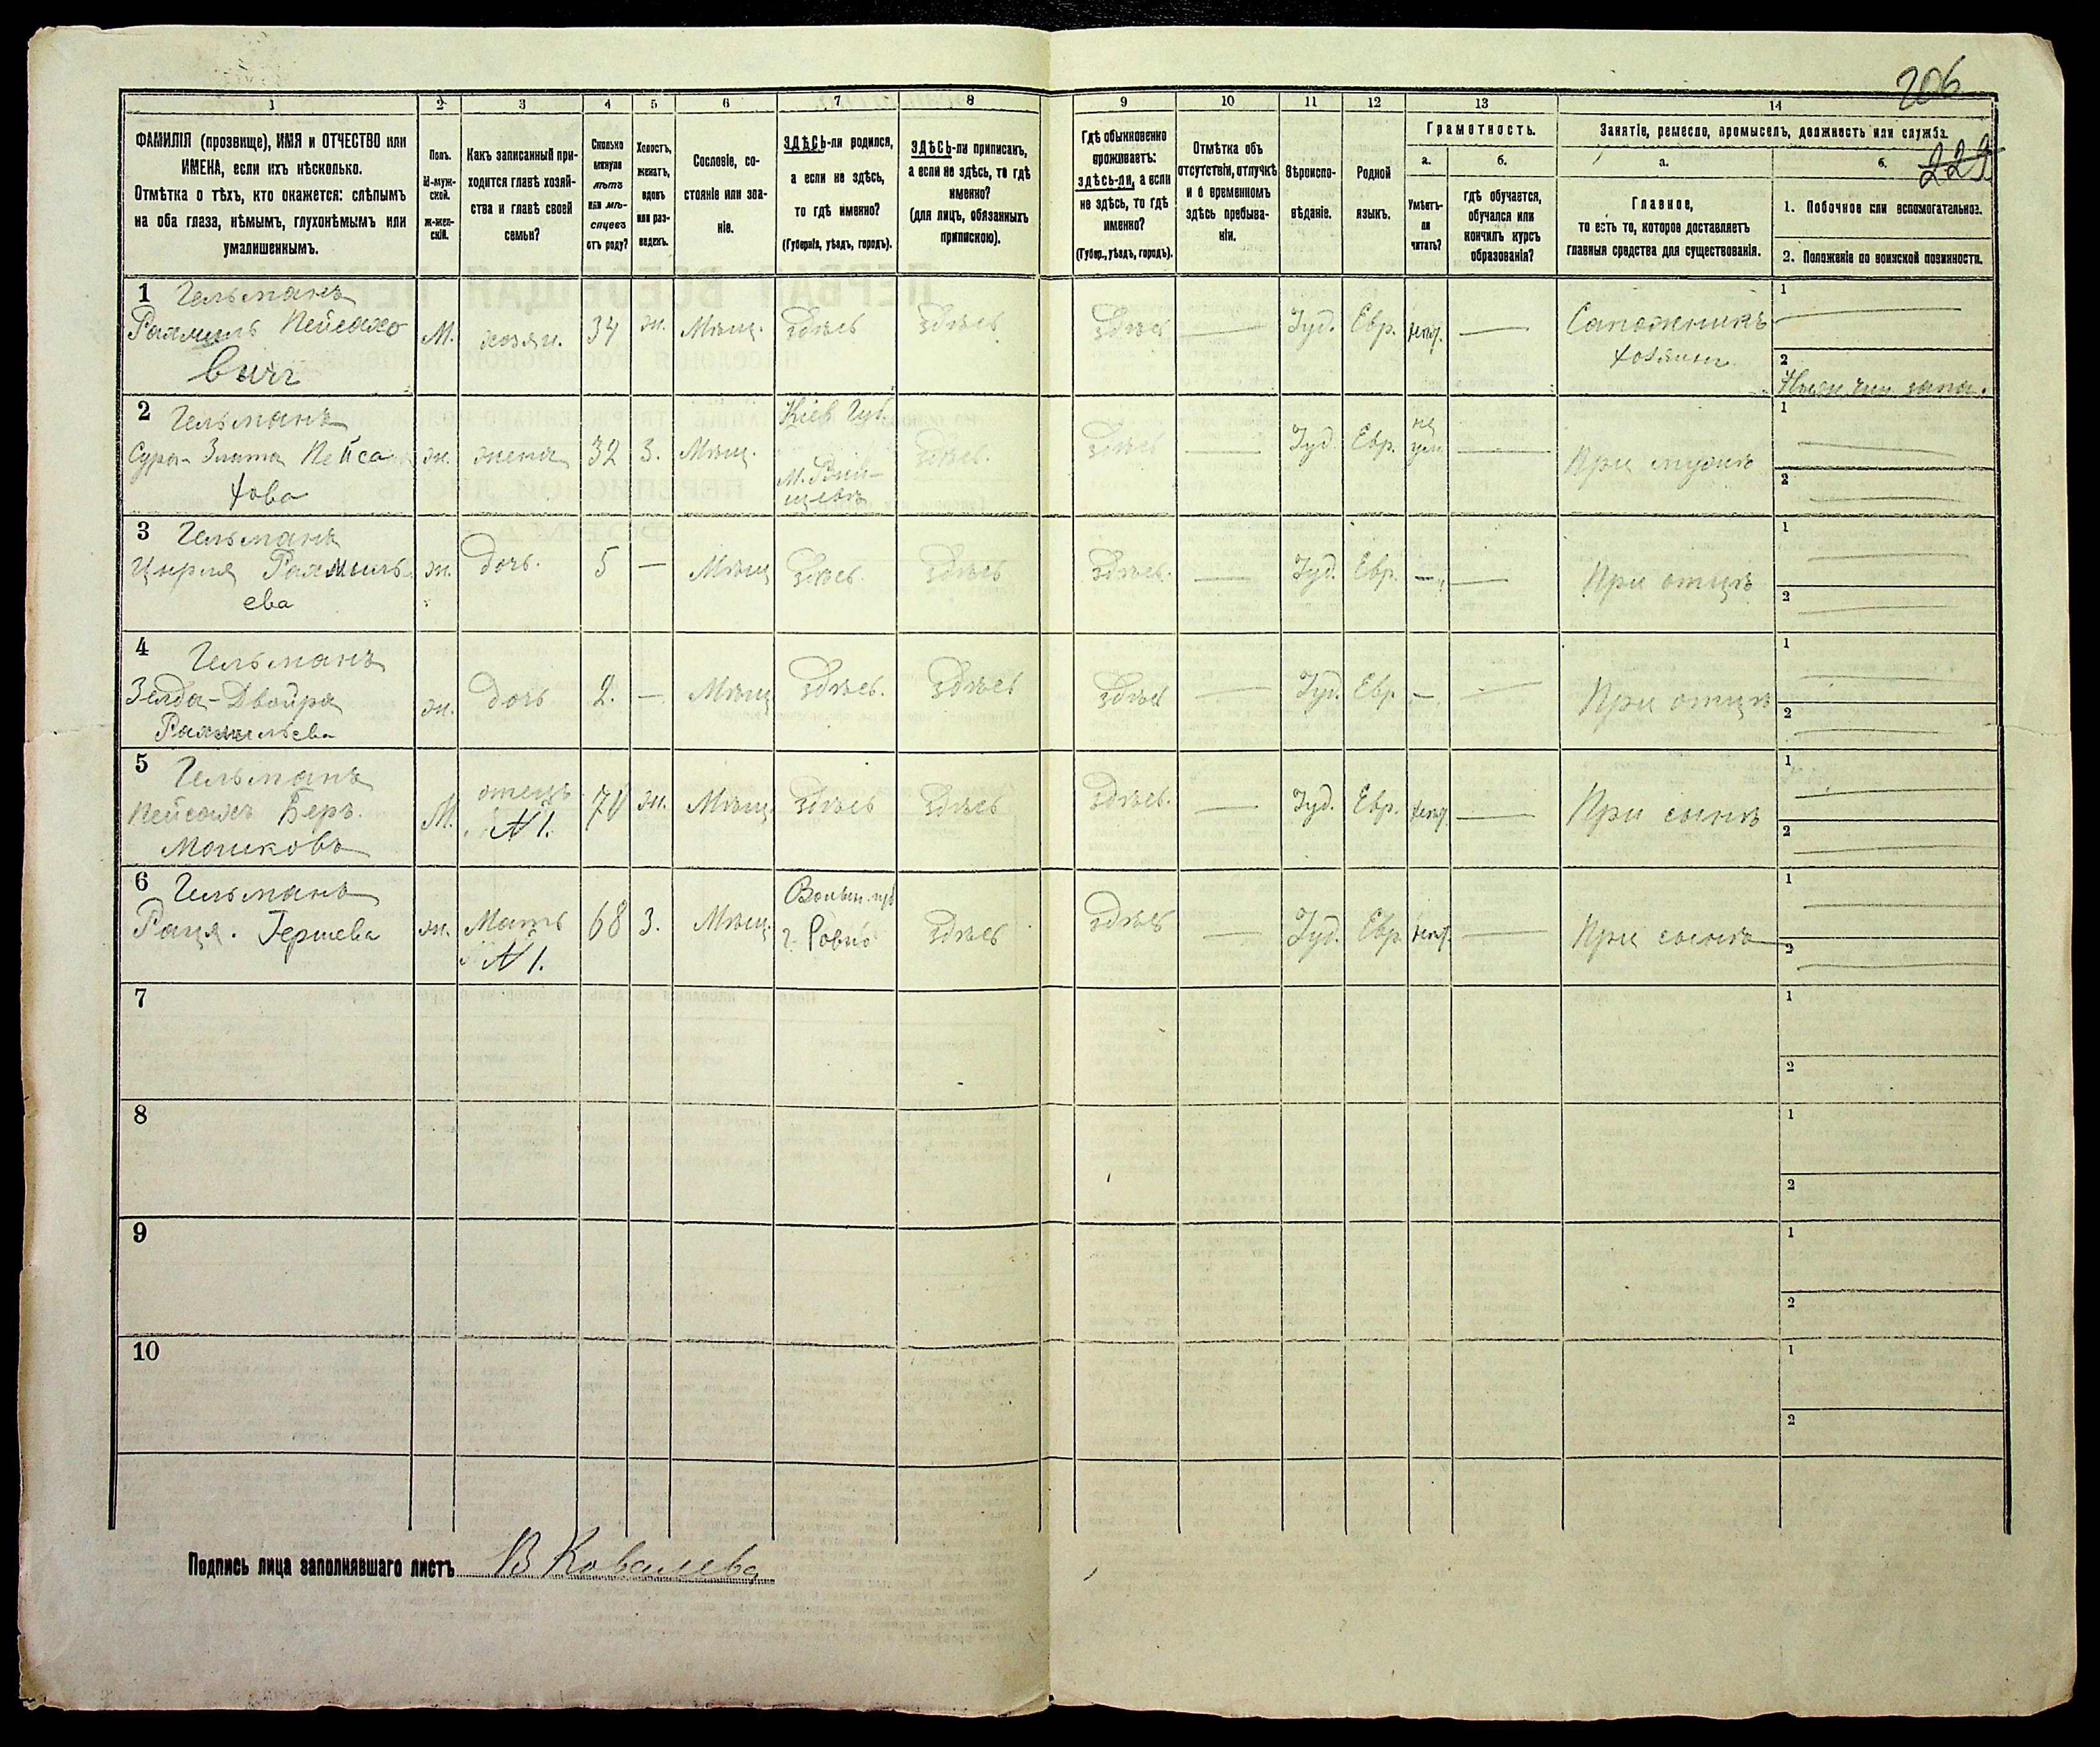 206
1 2 3 4 5 6 7 8 9 10 11 12 13 14
ФАМИЛІЯ (прозвище), ИМЯ и ОТЧЕСТВО или
ИМЕНА, если ихъ нѣсколько.
Отмѣтка о тѣхъ, кто окажется: слѣпымъ
на оба глаза, нѣмымъ, глухонѣмымъ или
умалишеннымъ.
Полъ.
М-муж-
ской.
ж-жен-
скій.
Какъ записанный при-
ходится главѣ хозяй-
ства и главѣ своей
семьи?
Сколько
минуло
лѣтъ
или мѣ-
сяцевъ
отъ роду?
Холостъ,
женатъ,
вдовъ
или раз-
веденъ.
Сословіе, со-
стояніе или зва-
ніе.
ЗДѢСЬ-ли родился,
а если не здѣсь,
то гдѣ именно?
(Губернія, уѣздъ, городъ).
ЗДѢСЬ-ли приписанъ,
а если не здѣсь, то гдѣ
именно?
(для лицъ, обязанныхъ
припискою).
Гдѣ обыкновенно
проживаетъ:
здѣсь-ли, а если
не здѣсь, то гдѣ
именно?
(Губер., уѣздъ, городъ).
Отмѣтка объ
отсутствіи, отлучкѣ
и о временномъ
здѣсь пребыва-
ніи.
Вѣроиспо-
вѣданіе.
Родной
языкъ.
Грамотность.
а. б.
Умѣетъ-
ли
читать?
гдѣ обучается,
обучался или
кончилъ курсъ
образованія?
Занятіе, ремесло, промыселъ, должность или служба.
а. б.
229
Главное,
то есть то, которое доставляетъ
главныя средства для существованія.
1. Побочное или вспомогательное.
2. Положеніе по воинской повинности.
1 Гельманъ
Рахмиль Пейсахо
вичъ
М. хозяи. 34 ж. Мѣщ. здѣсь здѣсь здѣсь — Іуд. Евр. —
Сапожникъ
хозяинъ
1
2
2 Гельманъ
Сура-Злата Пейса
хова
ж. жена 32 З. Мѣщ.
Кіев Губ.
здѣсь. здѣсь — Іуд. Евр.
не
ум.
— При мужѣ
1
2
3 Гельманъ
Цирля Рахмиль
ева
ж. дочь. 5 — Мѣщ здѣсь. здѣсь здѣсь. — Іуд. Евр. — — При отцѣ
1
2
4 Гельманъ
Зелда-Двойра
Рахмильева
ж. дочь 2. — Мѣщ здѣсь. здѣсь здѣсь — Іуд. Евр. — — При отцѣ
1
2
5 Гельманъ
Пейсахъ Беръ.
Мошковъ
М. отецъ
№ 1.
70 ж. Мѣщ. здѣсь здѣсь здѣсь. — Іуд. Евр. — При сынѣ
1
2
6 Гельманъ
Рация. Гершева
ж. Мать
№ 1.
68 З. Мѣщ.
Волын. губ
г. Ровно
здѣсь здѣсь — Іуд. Евр — При сынѣ
1
2
7
1
2
8
1
2
9
1
2
10
1
2
Подпись лица заполнявшаго листъ В Ковалева